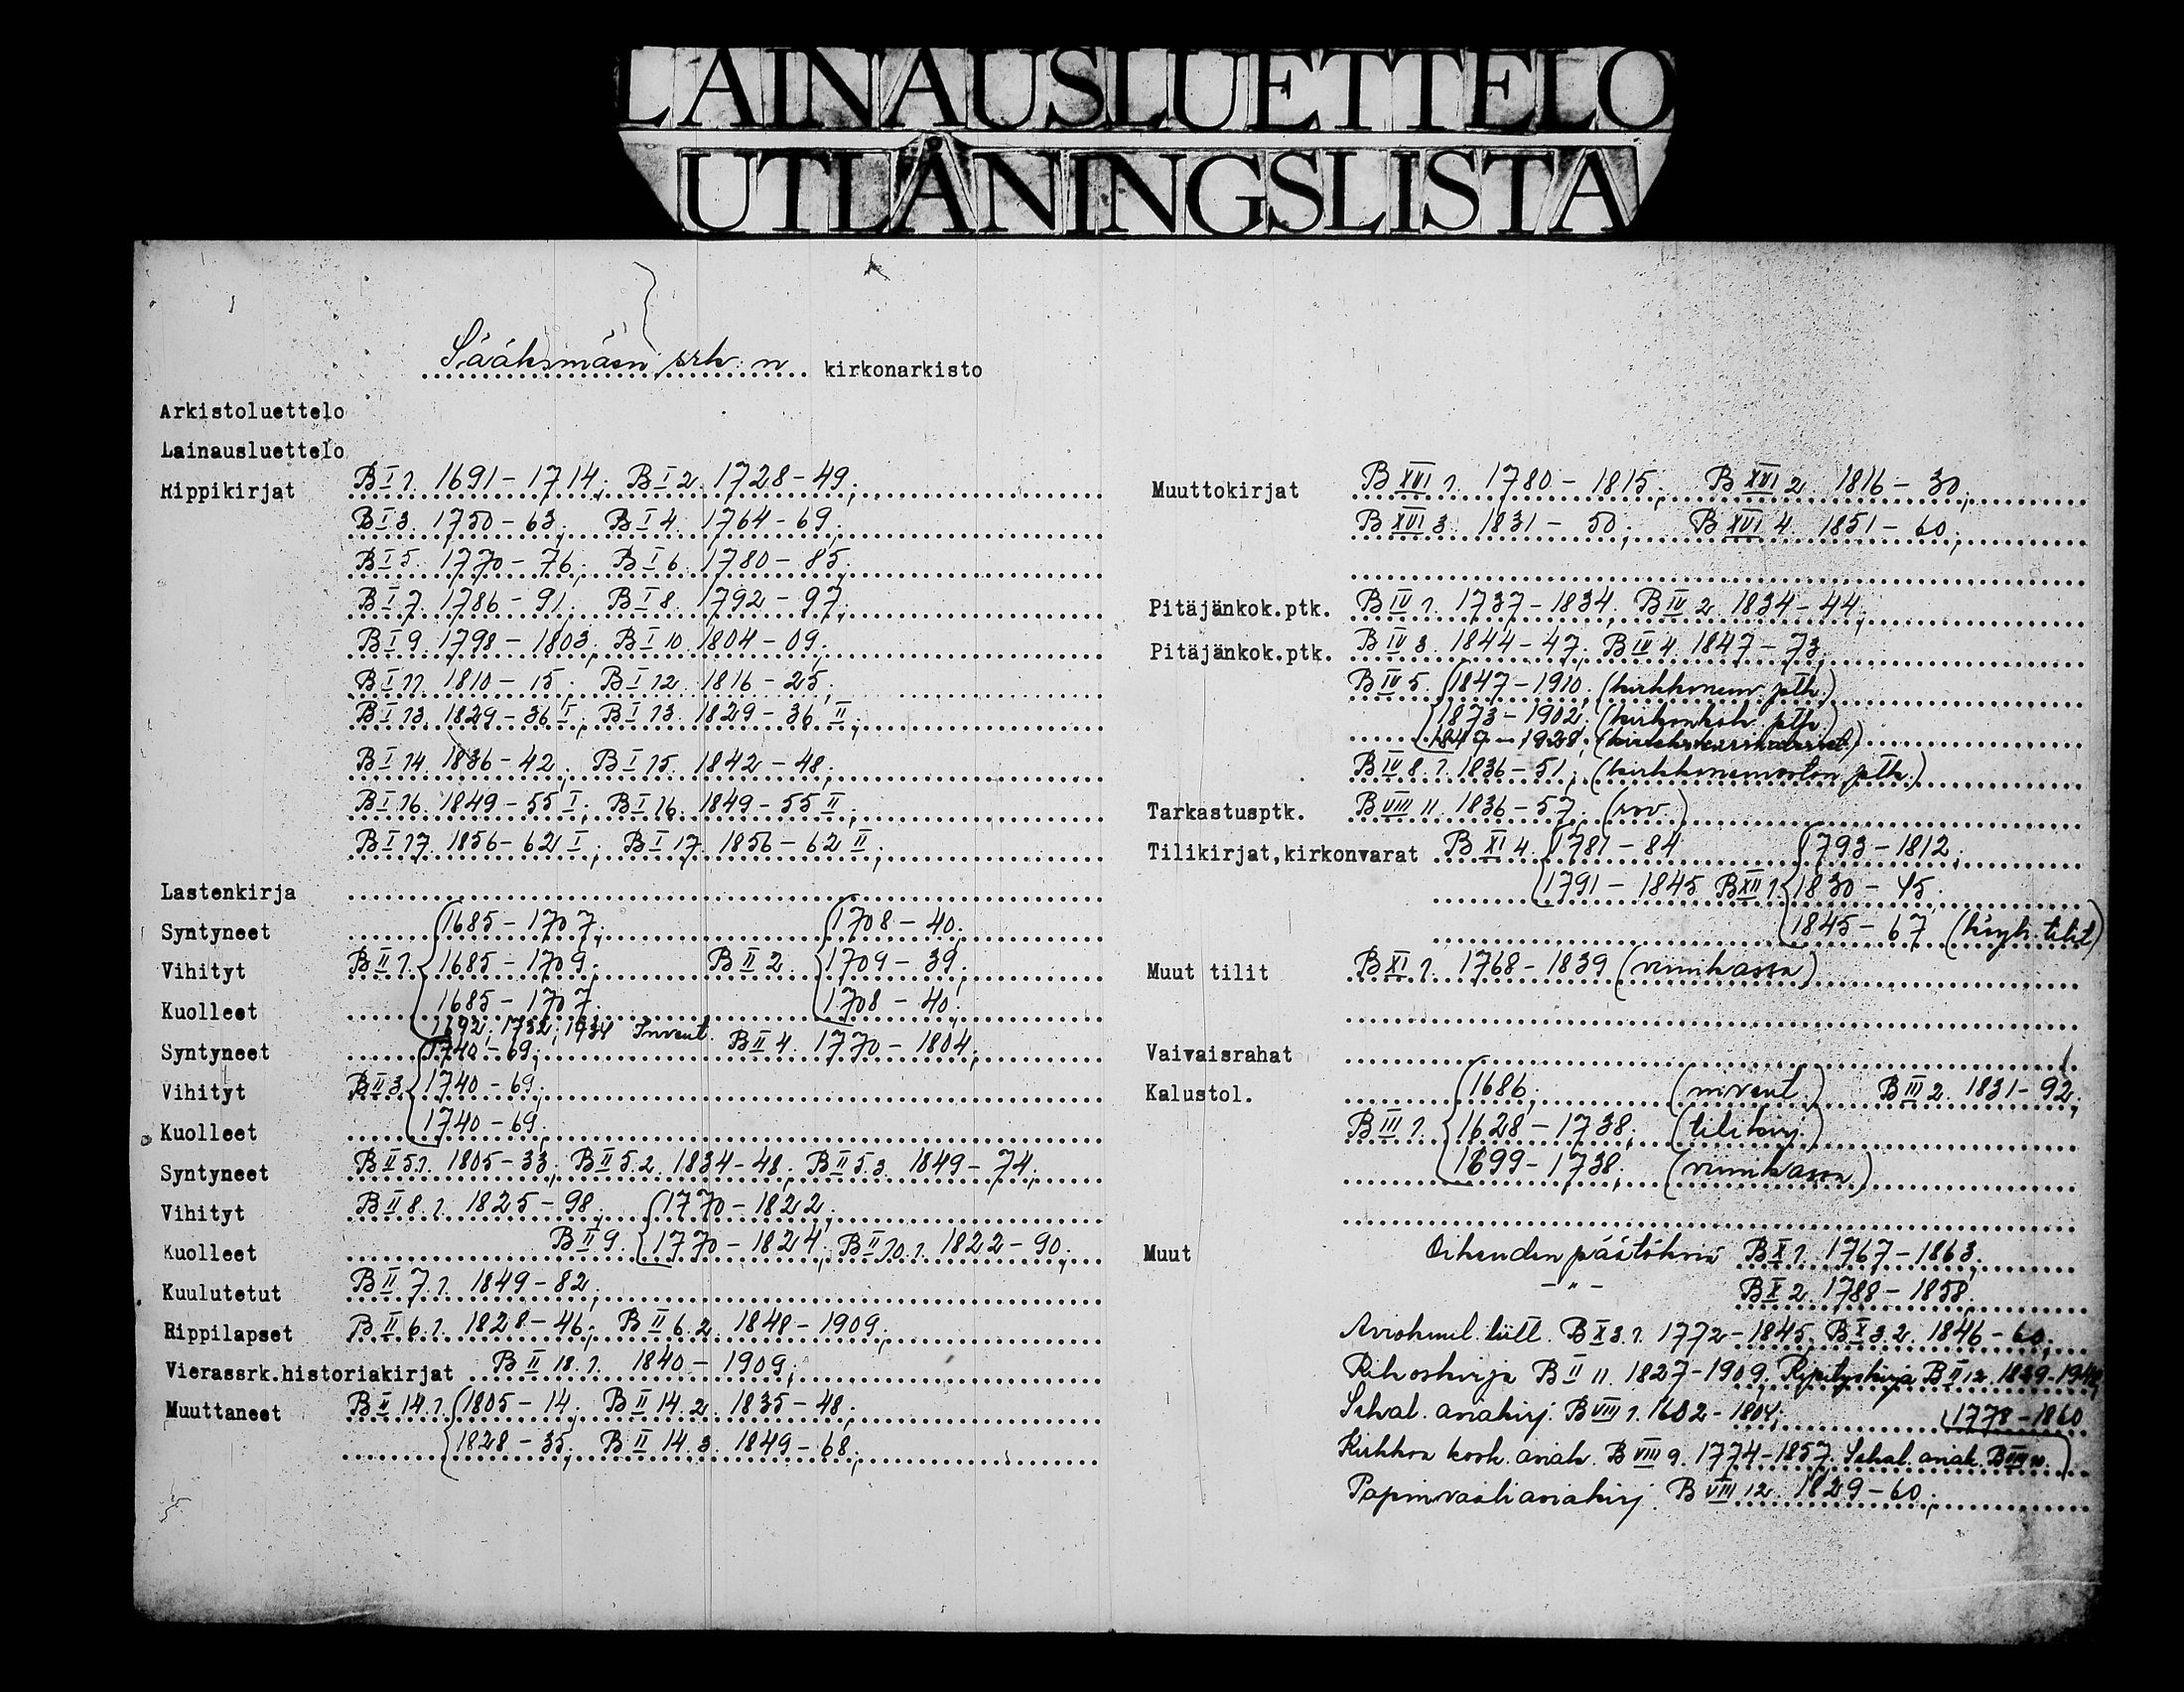 LAINAUSLUETTELO
UTLÅNINGSLISTA
Sääksmäen srk:n kirkonarkisto
Arkistoluettelo
Lainausluettelo
Rippikirjat BI1. 1691-1714; BI2. 1728-49;
BI3. 1750-63; BI4. 1764-69;
BI5. 1770-76; BI6. 1780-85;
BI7. 1786-91; BI8. 1792-97;
BI9. 1798-1803; BI10. 1804-09;
BI11. 1810-15; BI12. 1816-25;
BI13. 1829-36 I; BI13. 1829-36 II;
BI14. 1836-42; BI15. 1842-48;
BI16. 1849-55 I; BI16. 1849-55 II;
BI17. 1856-62 I; BI17. 1856-62 II;
Lastenkirja
Syntyneet 1685-1707; 1708-40;
Vihityt BII1. 1685-1709; BII2. 1709-39;
Kuolleet 1685-1707; 1708-40;
1692; 1732; 1734 Invent.
Syntyneet 1740-69; BII4. 1770-1804;
Vihityt BII3. 1740-69;
Kuolleet 1740-69;
Syntyneet BII5.1. 1805-33; BII5.2. 1834-48; BII5.3. 1849-74;
Vihityt BII8.1. 1825-98; 1770-1822;
Kuolleet BII9. 1770-1824; BII10.1. 1822-90;
Kuulutetut BII7.1. 1849-82;
Rippilapset BII6.1. 1828-46; BII6.2. 1848-1909;
Vierassrk.historiakirjat BII18.1. 1840-1909;
Muuttaneet BII14.1. 1805-14; BII14.2. 1835-48;
1828-35; BII14.3. 1849-68;
Muuttokirjat BXVI1. 1780-1815; BXVI2. 1816-30;
BXVI3. 1831-50; BXVI4. 1851-60;
Pitäjänkok.ptk. BIV1. 1737-1834; BIV2. 1834-44;
Pitäjänkok.ptk. BIV3. 1844-47; BIV4. 1847-73;
BIV5. 1847-1910; (kirkkoneuv. ptk.)
1873-1902; (kirkonkok. ptk.)
1847-1928;
BIV8.1. 1836-51; (kirkkoneuvoston ptk.)
Tarkastusptk. BVIII11. 1836-57; (rov.)
Tilikirjat,kirkonvarat BXI4. 1781-84 1793-1812;
1791-1845 BXII1. 1830-45;
1845-67 (köyh. tilit)
Muut tilit BXI1. 1768-1839 (viinikassa)
Vaivaisrahat
Kalustol. 1686; (invent.) BIII2. 1831-92;
BIII1. 1628-1738; (tilikirj.)
1699-1738; (viinikassa)
Muut Oikeuden päätöksiä BX1. 1767-1863;
-"- BX2. 1788-1858;
Aviokuul. luett. BX3.1. 1772-1845; BX3.2. 1846-60;
Rikoskirja BII11. 1827-1909; Ripityskirja BII12.
Sekal. asiakirj. BVIII1. 1602-1804; 1778-1860
Kirkkoa kosk. asiak. BVIII9. 1774-1857; Sekal. asiak. BVIII10.
Papinvaaliasiakirj. BVIII12. 1829-60;